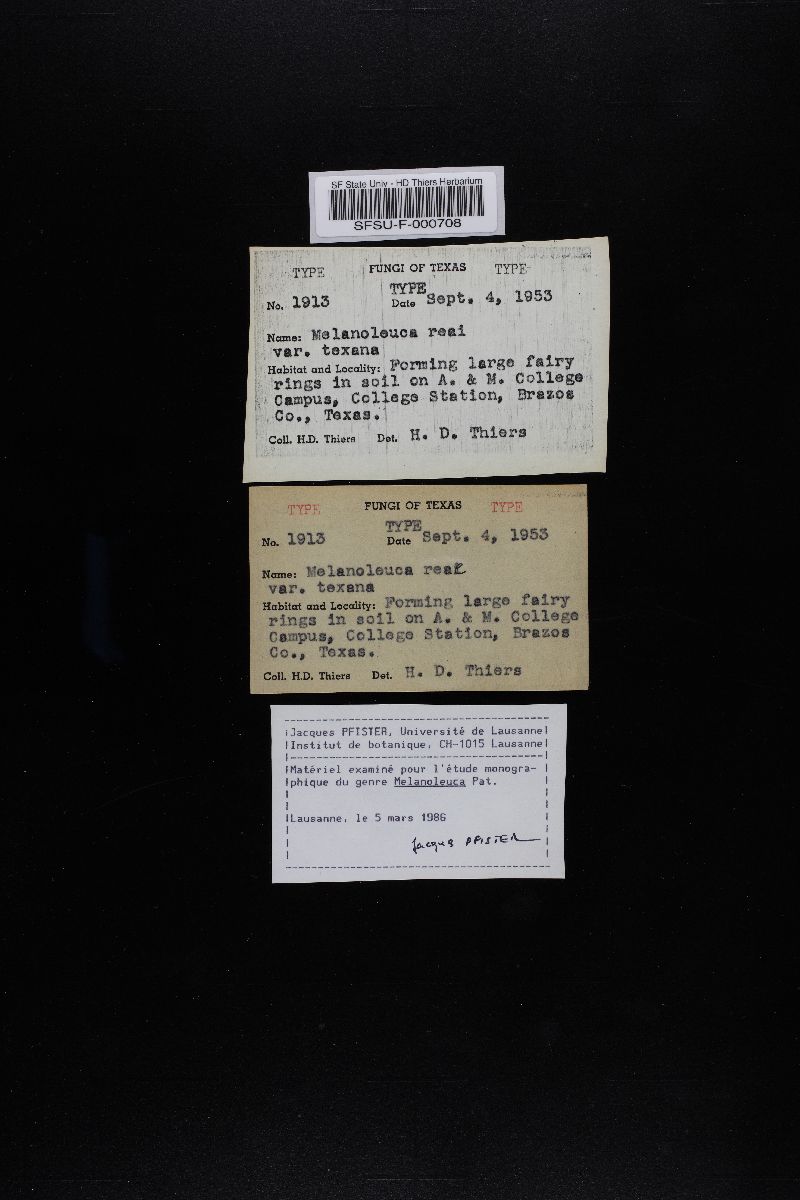 SF State Univ - HD Thiers Herbarium
SFSU-F-000708
TYPE FUNGI OF TEXAS TYPE
TYPE
No. 1913 Date Sept. 4, 1953
Name: Melanoleuca reai
var. texana
Habitat and Locality: Forming large fairy
rings in soil on A. & M. College
Campus, College Station, Brazos
Co., Texas.
Coll. H.D. Thiers Det. H. D. Thiers
TYPE FUNGI OF TEXAS TYPE
TYPE
No. 1913 Date Sept. 4, 1953
Name: Melanoleuca reai
var. texana
Habitat and Locality: Forming large fairy
rings in soil on A. & M. College
Campus, College Station, Brazos
Co., Texas.
Coll. H.D. Thiers Det. H. D. Thiers
Jacques PFISTER, Université de Lausanne
Institut de botanique, CH-1015 Lausanne
Matériel examiné pour l'étude monogra-
phique du genre Melanoleuca Pat.
Lausanne, le 5 mars 1986
Jacques PFISTER